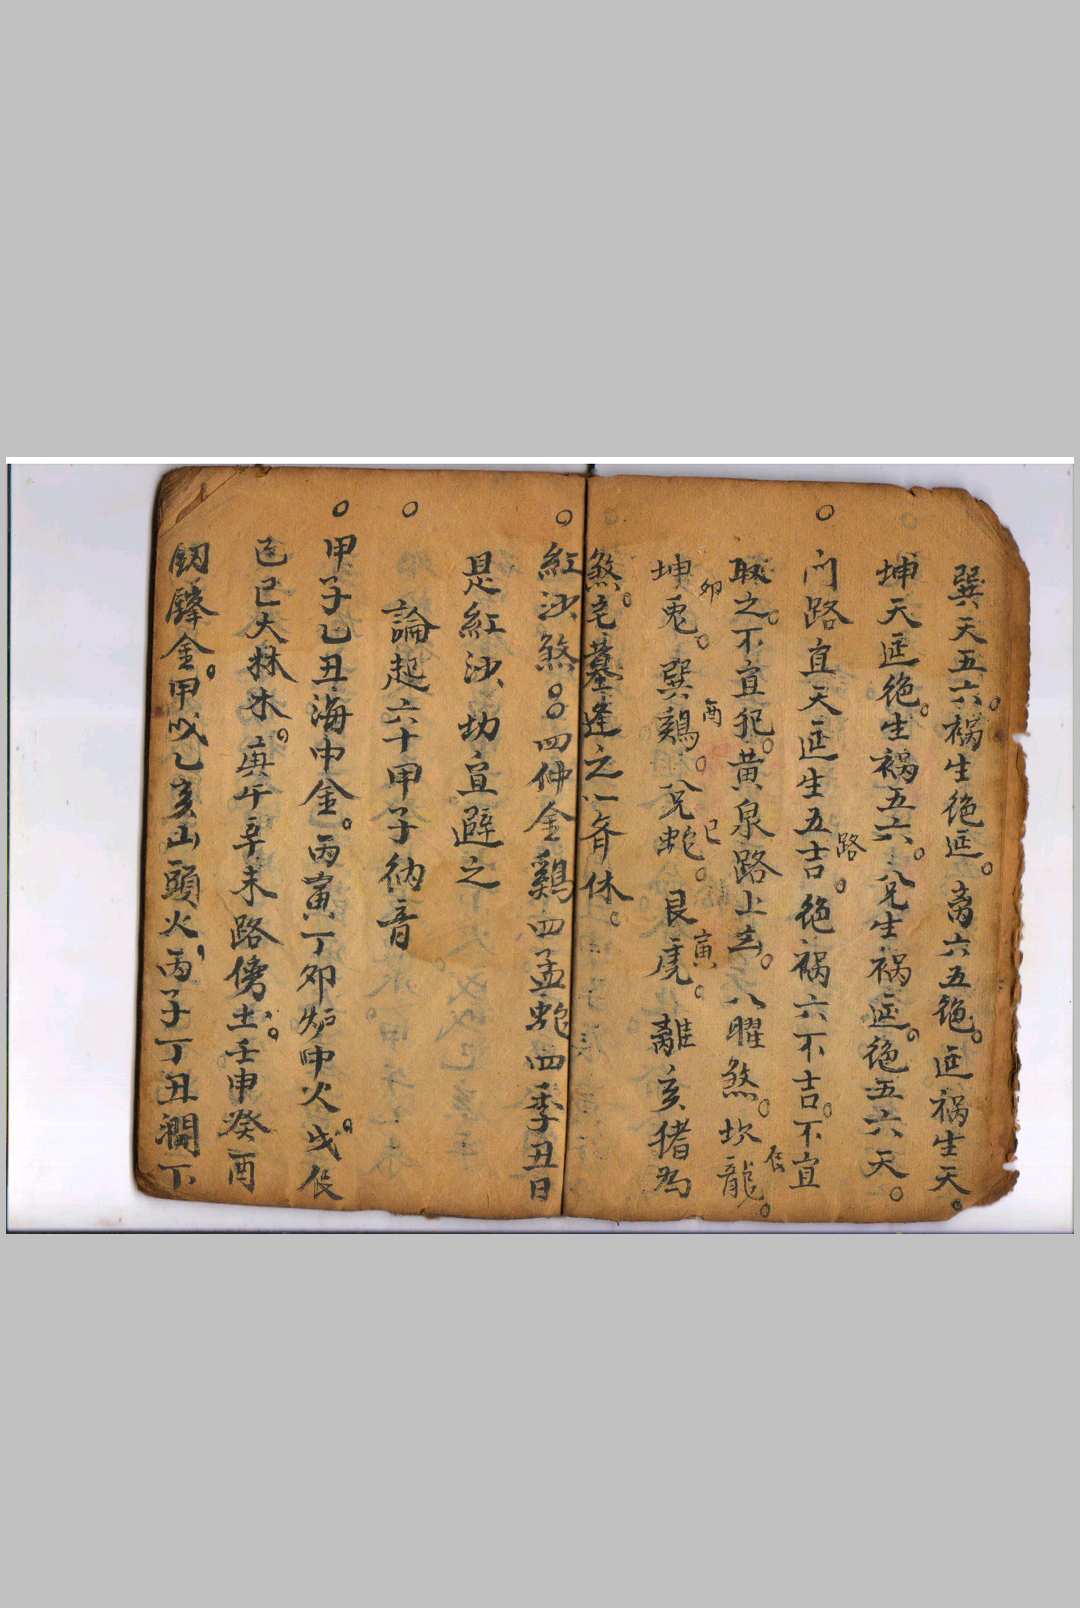 巽天五六。禍生绝延。离六五绝。延禍生天。
坤天延绝。生禍五六。兑生禍延。绝五六天。
○門路宜天延生五吉。绝禍六不吉。不宜
路
之。不宜犯。黄泉路上去。八曜煞。坎龍。
辰
坤兎。巽鷄。兑蛇。艮虎。離亥猪為
卯
酉
巳
寅
煞。宅墓逢之一斉休。
○紅沙煞。○四仲金鷄四孟蛇四季丑日
是紅沙切宜避之
○論起六十甲子納音
○甲子乙丑海中金。丙寅丁卯炉中火。戊辰
己巳大林木。庚午辛未路傍土。壬申癸酉
釼鋒金。甲戌乙亥山頭火，丙子丁丑澗下